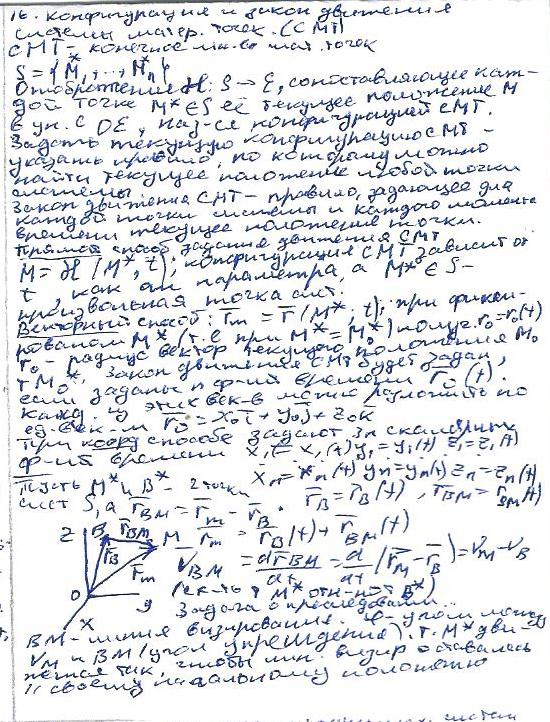 16. конфигурация и закон движения
системы матер. точек. (СМТ)
СМТ - конечное мн-во мат. точек
S = {M*₁, ..., M*ₙ}
Отображение ℋ: S → E, сопоставляющее каж-
дой точке M* ∈ S её текущее положение M
в ун. СОЕ, наз-ся конфигурацией СМТ.
Задать текущую конфигурацию СМТ -
указать правило, по которому можно
найти текущее положение любой точки
системы.
Закон движения СМТ - правило, задающее для
каждой точки системы и каждого момента
времени текущее положение точки.
Прямой способ задание движения СМТ
M = ℋ(M*, t); конфигурация СМТ зависит от
t, как от параметра, а M* ∈ S -
произвольная точка сист.
Векторный способ: r̄m = r̄(M*, t); при фикси-
рованом M* (т.е при M* = M₀*) получ. r₀ = r₀(t)
r₀ - радиус вектор текущего положения M₀
т M₀*, закон движения СМТ будет задан,
если заданы n ф-ий времени r̄₀(t).
кажд. из этих век-в можно разложить по
ед. век-м r̄₀ = x₀ī + y₀j + z₀k̄
При коорд способе задают 3n скалярных
ф-ий времени x₁ = x₁(t) y₁ = y₁(t) z₁ = z₁(t)
xₙ = xₙ(t) yₙ = yₙ(t) zₙ = zₙ(t)
Пусть M* и B* - 2 точки
сист S, а r̄BM = r̄m - r̄B. r̄B = r̄B(t), r̄BM = r̄BM(t)
z B r̄BM M r̄m = r̄B(t) + r̄BM(t)
r̄B r̄m V̄BM = dr̄BM/dt = d/dt (r̄M - r̄B) = V̄M - V̄B
O y (ск-ть т M* отн-но т B*)
x Задача о преследовании...
BM - линия визирования. φ - угол между
VM и BM (угол упреждения). т. M* дви-
жется так, чтобы лин. визир оставалась
|| своему начальному положению